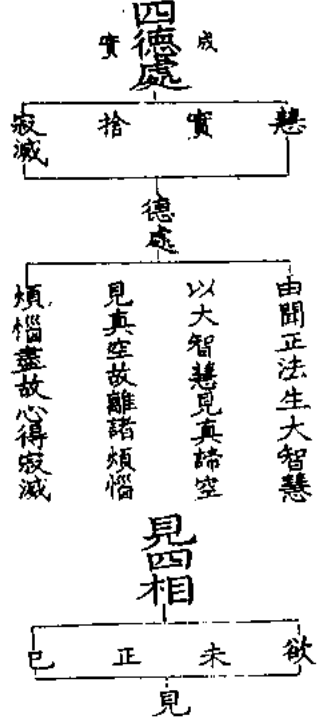 四德處
成實
慧
實
捨
寂滅
德處
由聞正法生大智慧
以大智慧見真諦空
見真空故離諸煩惱
煩惱盡故心得寂滅
見四相
欲
未
正
已
見